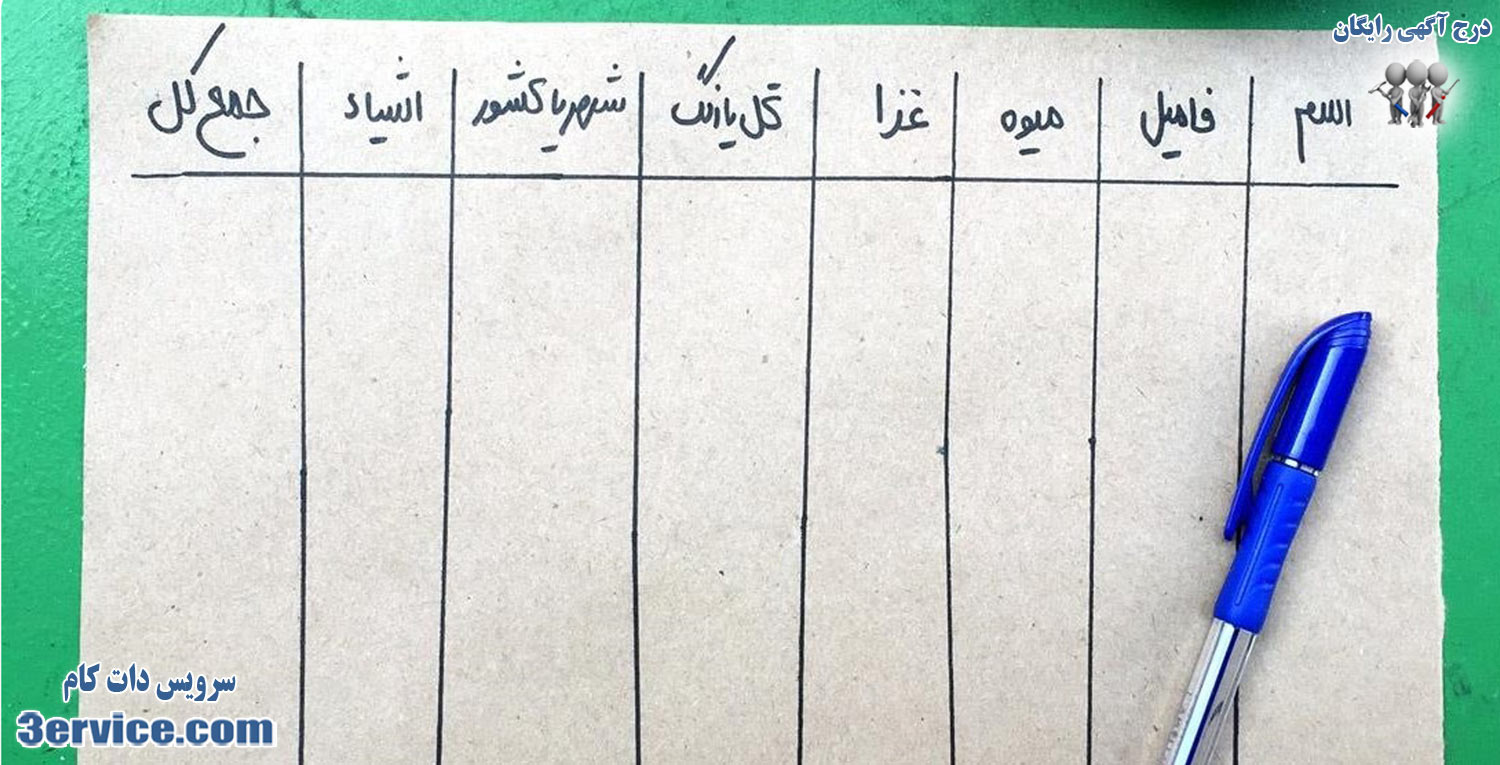 درج آگهی رایگان
اسم فامیل میوه غذا گل یا رنگ شهر یا کشور اشیاء جمع کل
سرویس دات کام
3ervice.com